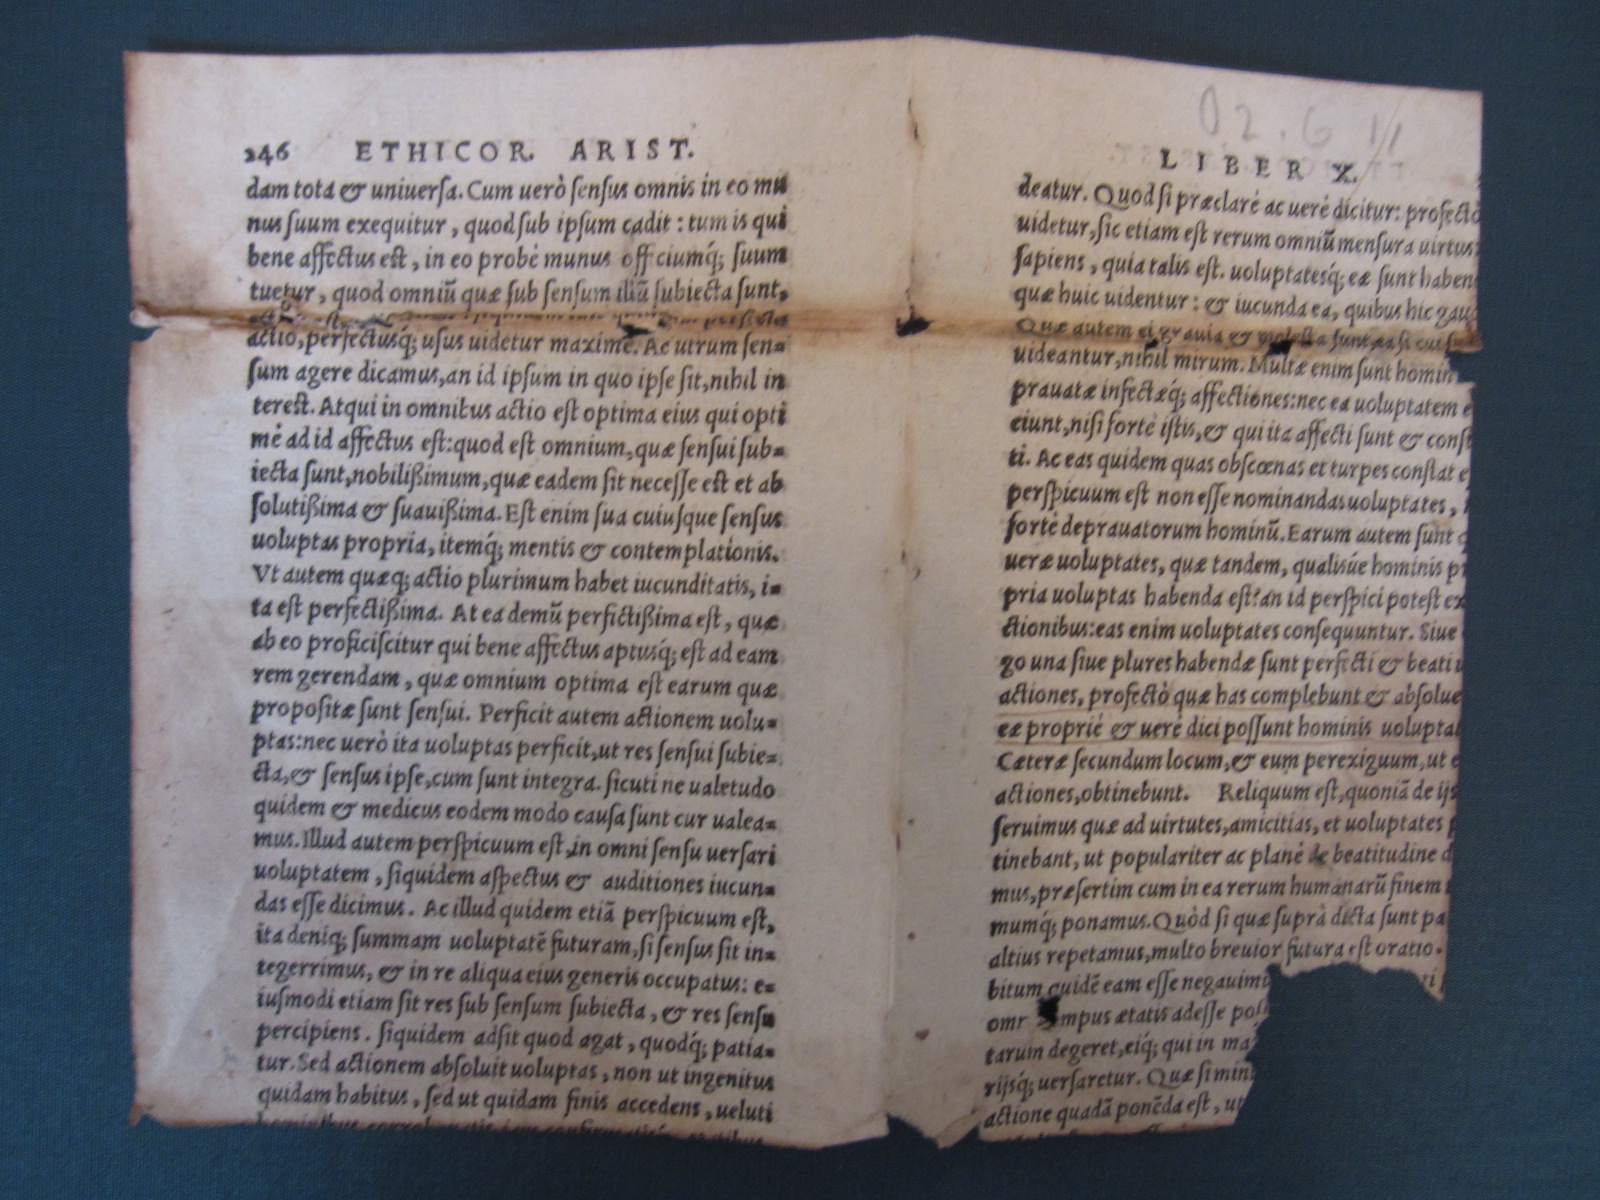 246 ETHICOR. ARIST.
dam tota & uniuersa. Cum uerò sensus omnis in eo mu
nus suum exequitur, quod sub ipsum cadit: tum is qui
bene affectus est, in eo probè munus officiumq́; suum
tuetur, quod omniũ quæ sub sensum illiũ subiecta sunt,
actio, perfectusq́; usus uidetur maximè. Ac utrum sen-
sum agere dicamus, an id ipsum in quo ipse sit, nihil in
terest. Atqui in omnibus actio est optima eius qui opti
mè ad id affectus est: quod est omnium, quæ sensui sub-
iecta sunt, nobilißimum, quæ eadem sit necesse est et ab
solutißima & suauißima. Est enim sua cuiusque sensus
uoluptas propria, itemq́; mentis & contemplationis.
Vt autem quæq; actio plurimum habet iucunditatis, i-
ta est perfectißima. At ea demũ perfictißima est, quæ
ab eo proficiscitur qui bene affectus aptusq́; est ad eam
rem gerendam, quæ omnium optima est earum quæ
propositæ sunt sensui. Perficit autem actionem uolu-
ptas: nec uerò ita uoluptas perficit, ut res sensui subie-
cta, & sensus ipse, cum sunt integra. sicuti ne ualetudo
quidem & medicus eodem modo causa sunt cur ualea-
mus. Illud autem perspicuum est, in omni sensu uersari
uoluptatem, siquidem aspectus & auditiones iucun-
das esse dicimus. Ac illud quidem etiã perspicuum est,
ita deniq; summam uoluptatẽ futuram, si sensus sit in-
tegerrimus, & in re aliqua eius generis occupatus: e-
iusmodi etiam sit res sub sensum subiecta, & res sensu
percipiens. siquidem adsit quod agat, quodq́; patia-
tur. Sed actionem absoluit uoluptas, non ut ingenitus
quidam habitus, sed ut quidam finis accedens, ueluti
02.6
LIBER X.
deatur. Quod si præclarè ac uerè dicitur: profectò
uidetur, sic etiam est rerum omniũ mensura uirtus
sapiens, quia talis est. uoluptatesq́; eæ sunt haben
quæ huic uidentur: & iucunda ea, quibus hic gaud
Quæ autem ei grauia & molesta sunt, ea si cui
uideantur, nihil mirum. Multæ enim sunt homin
prauatæ infectæq́; affectiones: nec ea uoluptatem e
ciunt, nisi fortè istis, & qui ita affecti sunt & const
ti. Ac eas quidem quas obscœnas et turpes constat e
perspicuum est non esse nominandas uoluptates,
fortè deprauatorum hominũ. Earum autem sunt
ueræ uoluptates, quæ tandem, qualisúe hominis p
pria uoluptas habenda est? an id perspici potest ex
ctionibus: eas enim uoluptates consequuntur. Siue
go una siue plures habendæ sunt perfecti & beati u
actiones, profectò quæ has complebunt & absolue
eæ propriè & uerè dici possunt hominis uoluptat
Cæteræ secundum locum, & eum perexiguum, ut e
actiones, obtinebunt. Reliquum est, quoniã de ijs
seruimus quæ ad uirtutes, amicitias, et uoluptates
tinebant, ut populariter ac planè de beatitudine d
mus, præsertim cum in ea rerum humanarũ finem
mumq́; ponamus. Quòd si quæ suprà dicta sunt pa
altius repetamus, multo breuior futura est oratio.
bitum quidẽ eam esse negauimu
omr mpus ætatis adesse pos
tarum degeret, eiq́; qui in ma
rijsq́; uersaretur. Quæ si min
actione quadã ponẽda est, ut